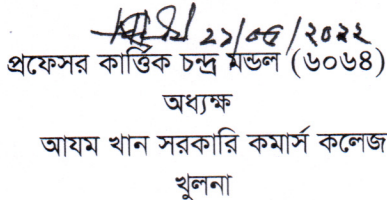 ২১/০৫/২০২২
প্রফেসর কার্ত্তিক চন্দ্র মন্ডল (৬০৬৪)
অধ্যক্ষ
আযম খান সরকারি কমার্স কলেজ
খুলনা